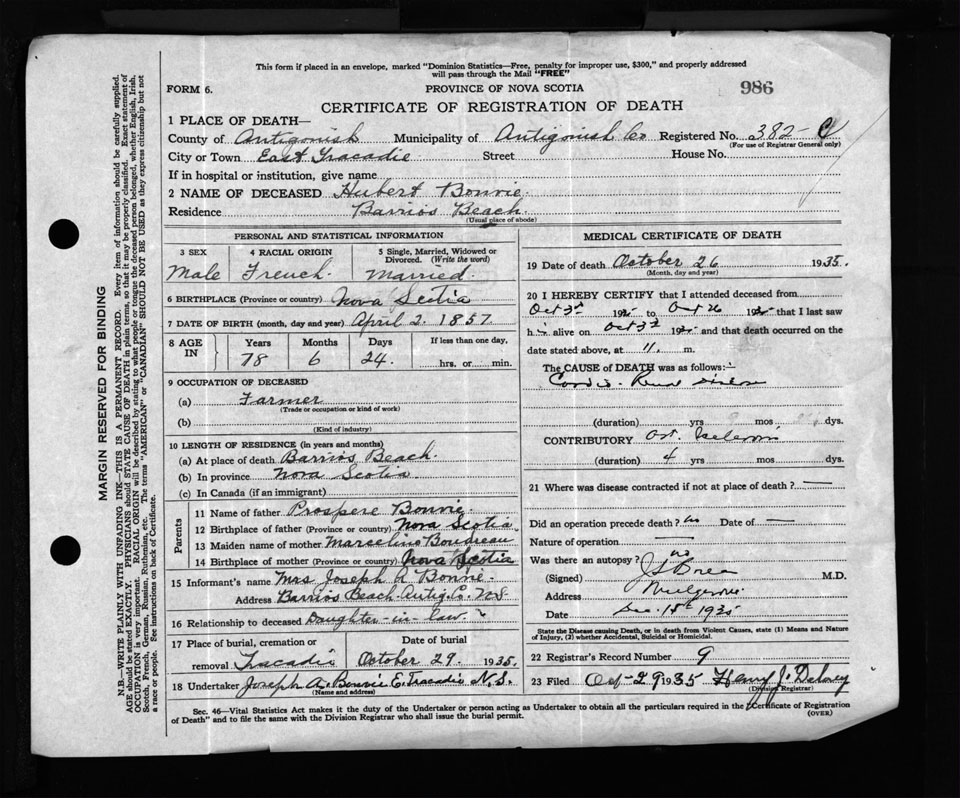 This form if placed in an envelope, marked "Dominion Statistics—Free, penalty for improper use, $300," and properly addressed
will pass through the Mail "FREE"
FORM 6.
PROVINCE OF NOVA SCOTIA
986
CERTIFICATE OF REGISTRATION OF DEATH
1 PLACE OF DEATH—
County of Antigonish Municipality of Antigonish Co Registered No. 382-
(For use of Registrar General only)
City or Town East Tracadie Street House No.
If in hospital or institution, give name
2 NAME OF DECEASED Hubert Bonvie
Residence Barrios Beach
(Usual place of abode)
PERSONAL AND STATISTICAL INFORMATION
3 SEX 4 RACIAL ORIGIN 5 Single, Married, Widowed or
Divorced. (Write the word)
Male French. Married.
6 BIRTHPLACE (Province or country) Nova Scotia
7 DATE OF BIRTH (month, day and year) April 2. 1857
8 AGE IN Years Months Days If less than one day,
78 6 24 hrs. or min.
9 OCCUPATION OF DECEASED
(a) Farmer
(Trade or occupation or kind of work)
(b)
(Kind of industry)
10 LENGTH OF RESIDENCE (in years and months)
(a) At place of death Barrios Beach.
(b) In province Nova Scotia
(c) In Canada (if an immigrant)
Parents
11 Name of father Prospere Bonvie
12 Birthplace of father (Province or country) Nova Scotia
13 Maiden name of mother Marceline Boudreau
14 Birthplace of mother (Province or country) Nova Scotia
15 Informant's name Mrs Joseph A Bonvie.
Address Barrios Beach Antig. Co. N.S
16 Relationship to deceased Daughter-in-law.
17 Place of burial, cremation or Date of burial
removal Tracadie October 29. 1935.
18 Undertaker Joseph A. Bonvie E. Tracadie N.S.
(Name and address)
MEDICAL CERTIFICATE OF DEATH
19 Date of death October 26 1935.
(Month, day and year)
20 I HEREBY CERTIFY that I attended deceased from
Oct 3rd 19 to Oct 26 19 that I last saw
h alive on Oct 3rd 19 and that death occurred on
date stated above, at 11. m.
The CAUSE of DEATH was as follows:
(duration) yrs mos dys.
CONTRIBUTORY
(duration) 4 yrs mos dys.
21 Where was disease contracted if not at place of death? —
Did an operation precede death? no Date of —
Nature of operation —
Was there an autopsy? no
(Signed) M.D.
Address Mulgrave
Date Dec. 15th 1935
State the Disease causing Death, or in death from Violent Causes, state (1) Means and Nature
of Injury, (2) whether Accidental, Suicidal or Homicidal.
22 Registrar's Record Number 9
23 Filed Oct-29 1935 Henry J. Delorey
(Division Registrar)
Sec. 46—Vital Statistics Act makes it duty of the Undertaker or person acting as Undertaker to obtain all the particulars required in the "Certificate of Registration
of Death" and to file the same with the Division Registrar who shall issue the burial permit.
(OVER)
MARGIN RESERVED FOR BINDING
N.B.—WRITE PLAINLY WITH UNFADING INK—THIS IS A PERMANENT RECORD. Every item of information should be carefully supplied.
AGE should be stated EXACTLY. PHYSICIANS should STATE CAUSE OF DEATH in plain terms, so that it may be properly classified. Exact statement of
OCCUPATION is very important. RACIAL ORIGIN will be described by stating to what people or tongue the deceased person belonged, whether English, Irish,
Scotch, French, German, Russian, Ruthenian, etc. The terms "AMERICAN" or "CANADIAN" SHOULD NOT BE USED as they express citizenship but not
a race or people. See instructions on back of Certificate.